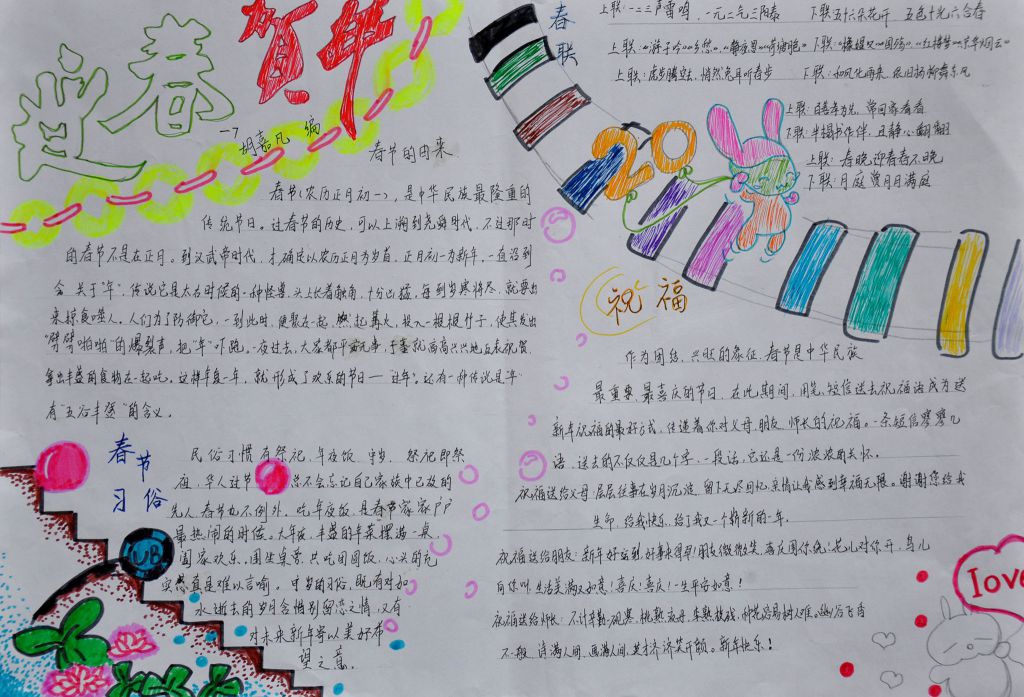 迎春
贺年
一7 胡嘉凡 编
春节的由来
春节(农历正月初一),是中华民族最隆重的
传统节日。过春节的历史,可以上溯到尧舜时代,不过那时
的春节不是在正月。到汉武帝时代,才确定以农历正月为岁首,正月初一为新年,一直沿到
今。关于"年",传说它是太古时候的一种怪兽,头上长着触角,十分凶猛,每到岁寒将尽,就要出
来掠食噬人。人们为了防御它,一到此时,便聚在一起,燃起篝火,投入一根根竹子,使其发出
"劈劈啪啪"的爆裂声,把"年"吓跑。一夜过去,大家都平安无事,于是就高高兴兴地互表祝贺,
拿出丰盛的食物在一起吃。这样年复一年,就形成了欢乐的节日——"过年"。还有一种传说是"年"
有"五谷丰登"的含义。
春节
习俗
民俗习惯有祭祀、年夜饭、守岁。祭祀即祭
祖,华人过节 总不会忘记自己家族中已故的
先人,春节也不例外。吃年夜饭,是春节家家户户
最热闹的时候。大年夜,丰盛的年菜摆满一桌,
阖家欢乐,围坐桌旁,共吃团圆饭,心头的充
实感真是难以言喻。守岁的习俗,既有对如
水逝去的岁月含惜别留恋之情,又有
对未来新年寄以美好希
望之意。
春联
上联:一二三声雷鸣,一元二气三阳泰 下联:五十六朵花开 五色十光六合春
上联:虎步腾空去,悄然兔耳听春步 下联:和风化雨来,依旧杨柳舞东风
上联:百善孝为先,常回家看看
下联:半榻书作伴,且静心翻翻
上联:春晚迎春春不晚
下联:月庭赏月月满庭
20
祝福
作为团结、兴旺的象征,春节是中华民族
最重要、最喜庆的节日,在此期间,用笔、短信送去祝福语成为送
新年祝福的最好方式,传递着你对父母、朋友、师长的祝福。一条短信寥寥几
语,送去的不仅仅是几个字,一段话,它还是一份浓浓的关怀。
祝福送给父母:层层往事在岁月沉淀,留下无尽回忆,亲情让我感到幸福无限。谢谢您给我
生命,给我快乐,给了我又一个崭新的一年。
祝福送给朋友:新年好运到,好事来得早!朋友微微笑,喜庆围你绕!花儿对你开,鸟儿
向你叫。生活美满又如意!喜庆!喜庆!一生平安如意!
祝福送给师长:不计辛勤一砚寒,桃熟流丹,李熟枝残,种花容易树人难。幽谷飞香
不一般,诗满人间,画满人间,英才济济笑开颜。新年快乐!
love